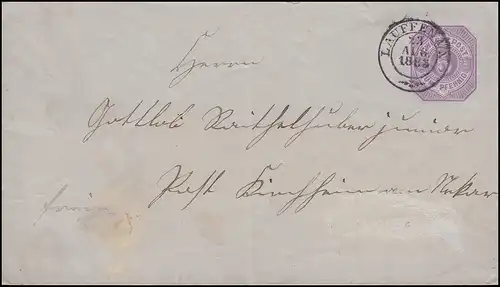 LAUFFEN A/N
23
AUG
1883
POST
PFENNIG
Herrn
Gottlob Raithelhuber junior
Post Kirchheim am Nekar